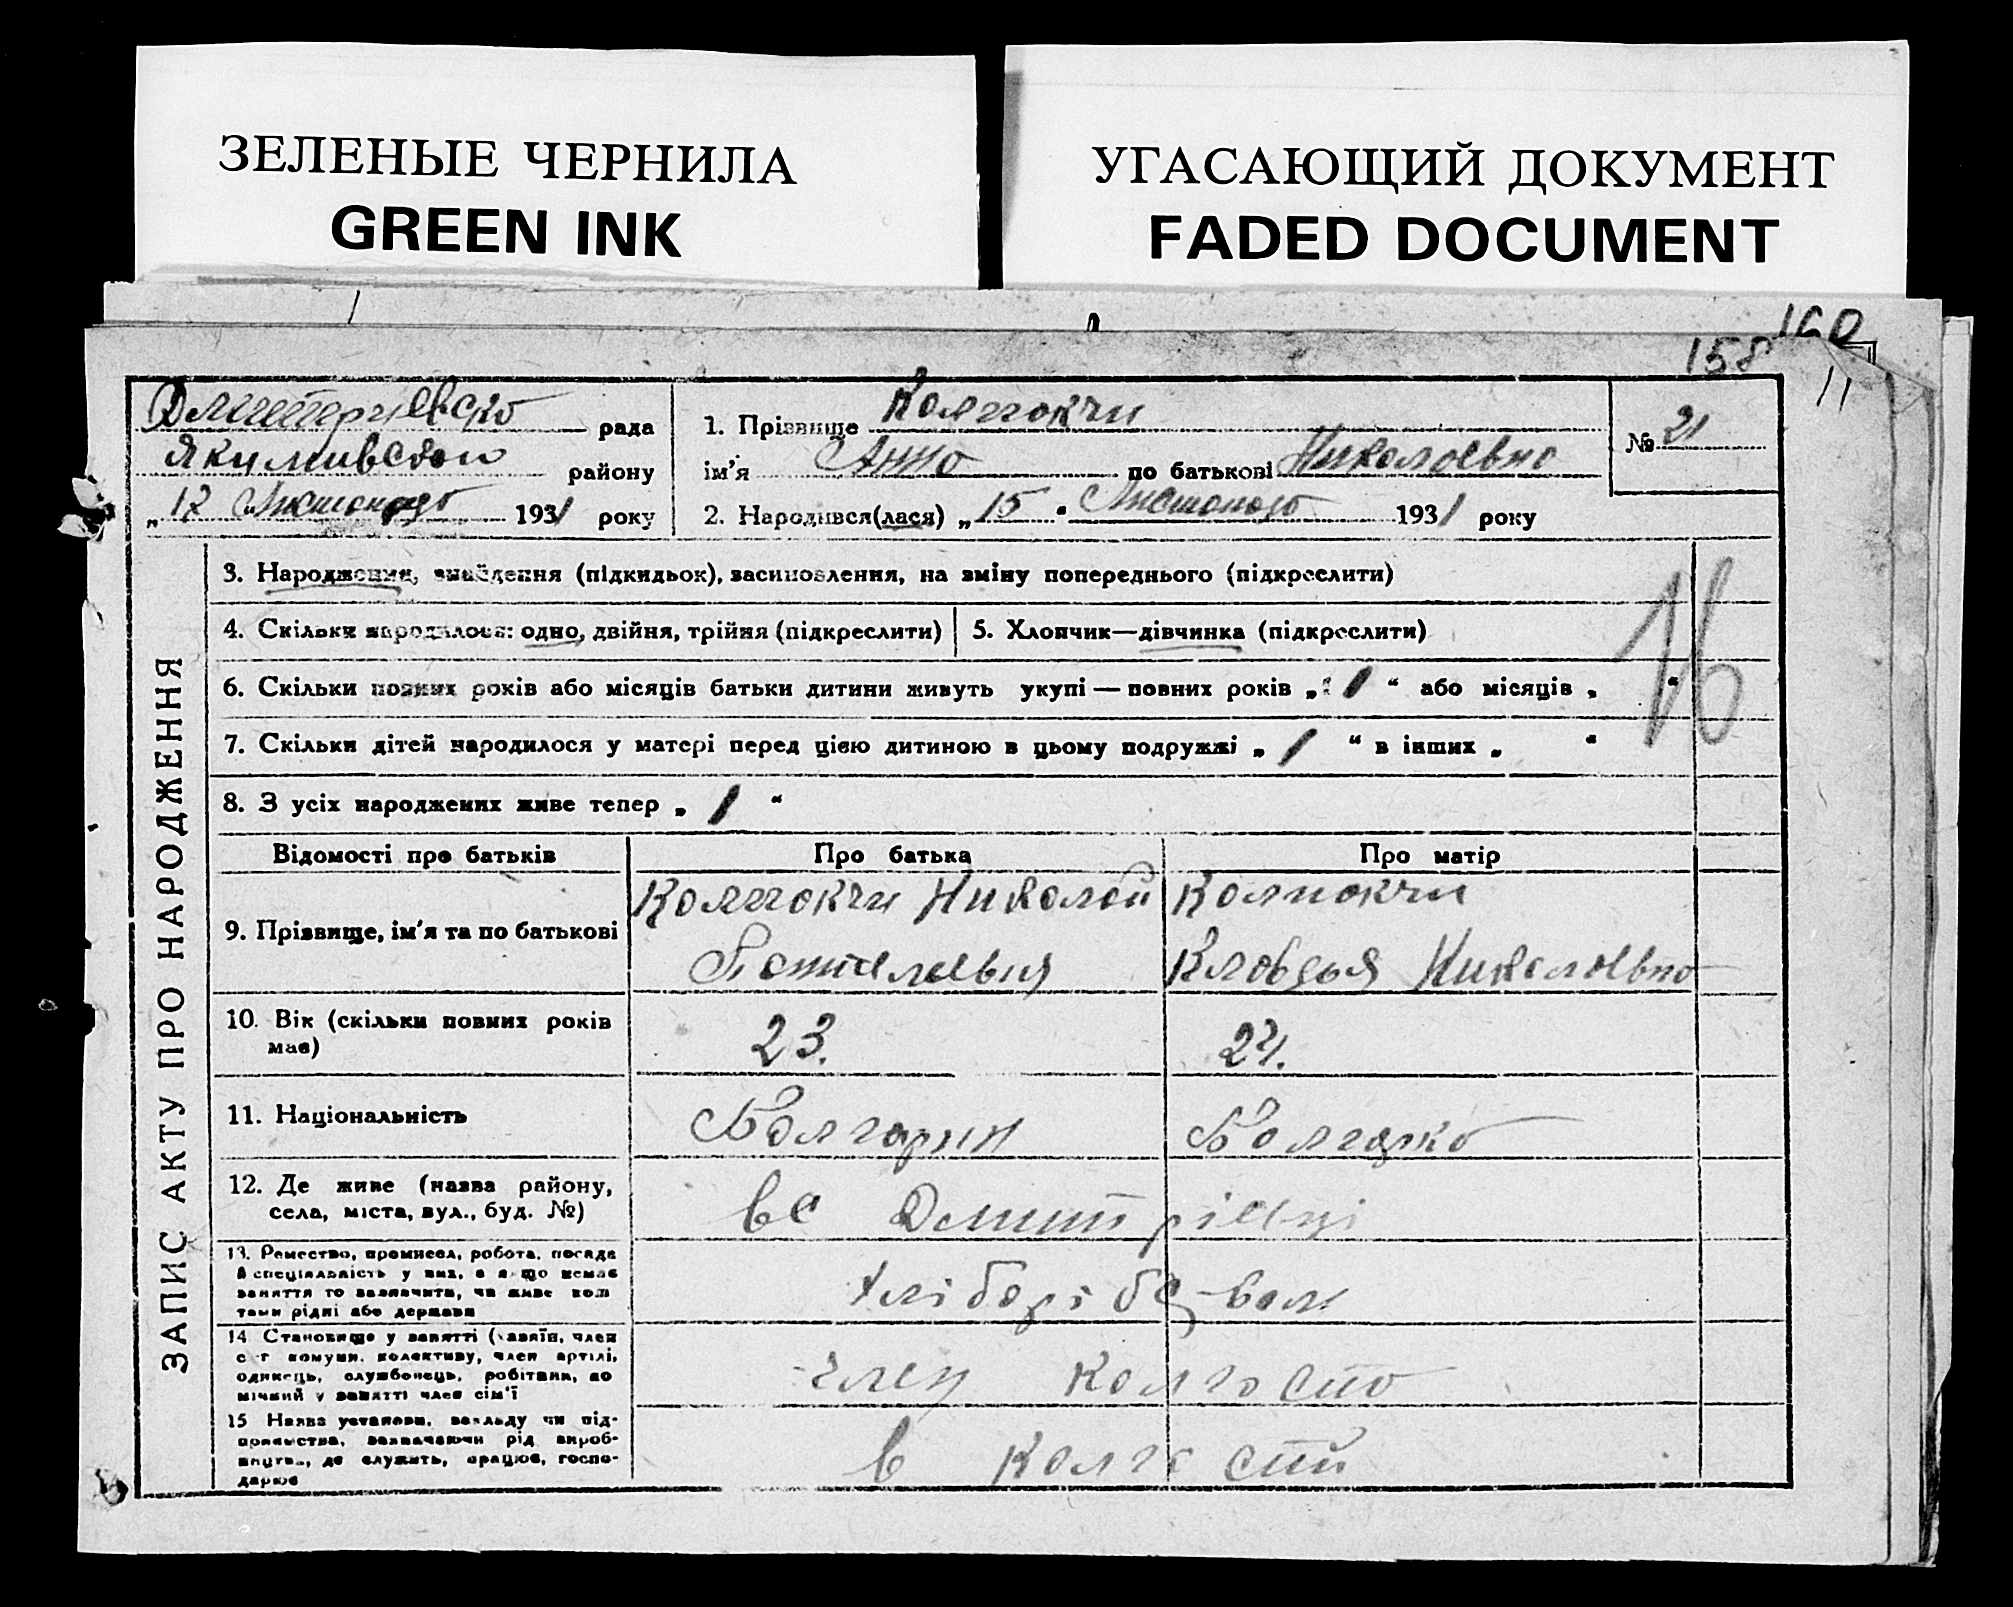 ЗЕЛЕНЫЕ ЧЕРНИЛА
GREEN INK
УГАСАЮЩИЙ ДОКУМЕНТ
FADED DOCUMENT
160
158
Дмитріевско рада
Якимивской району
„ 17 " Листоподо 1931 року
1. Прізвище Калпокчи
ім'я Анно по батькові Николоевно
2. Народився(лася) „ 15 " Листоподо 1931 року
№ 21
ЗАПИС АКТУ ПРО НАРОДЖЕННЯ
3. Народження, знайдення (підкидьок), засиновлення, на зміну попереднього (підкреслити)
4. Скільки народилося: одно, двійня, трійня (підкреслити)
5. Хлопчик—дівчинка (підкреслити)
16
6. Скільки повних років або місяців батьки дитини живуть укупі — повних років „ 1 “ або місяців „ “
7. Скільки дітей народилося у матері перед цією дитиною в цьому подружжі „ 1 “ в інших „ “
8. З усіх народжених живе тепер „ 1 “
Відомості про батьків
Про батька
Про матір
9. Прізвище, ім'я та по батькові
Калпокчи Николай
Калпокчи
Клавдья Николоевно
10. Вік (скільки повних років
має)
23.
24.
11. Національність
Болгарин
Болгарко
12. Де живе (назва району,
села, міста, вул., буд. №)
в с Дмитрівці
13. Ремество, промисел, робота, посада
й спеціяльність у них, а якщо немає
заняття то зазначити, чи живе кош
тами рідні або держави
хлібороб
14 Становище у занятті (хазяїн, член
с-г комуни, колективу, член артілі,
одинець, службовець, робітник, по
мічний у занятті член сім'ї
член колгоспо
15 Назва установи, закладу чи під-
приємства, зазначаючи рід вироб-
ництва, де служить, працює, госпо-
дарює
в колгоспі